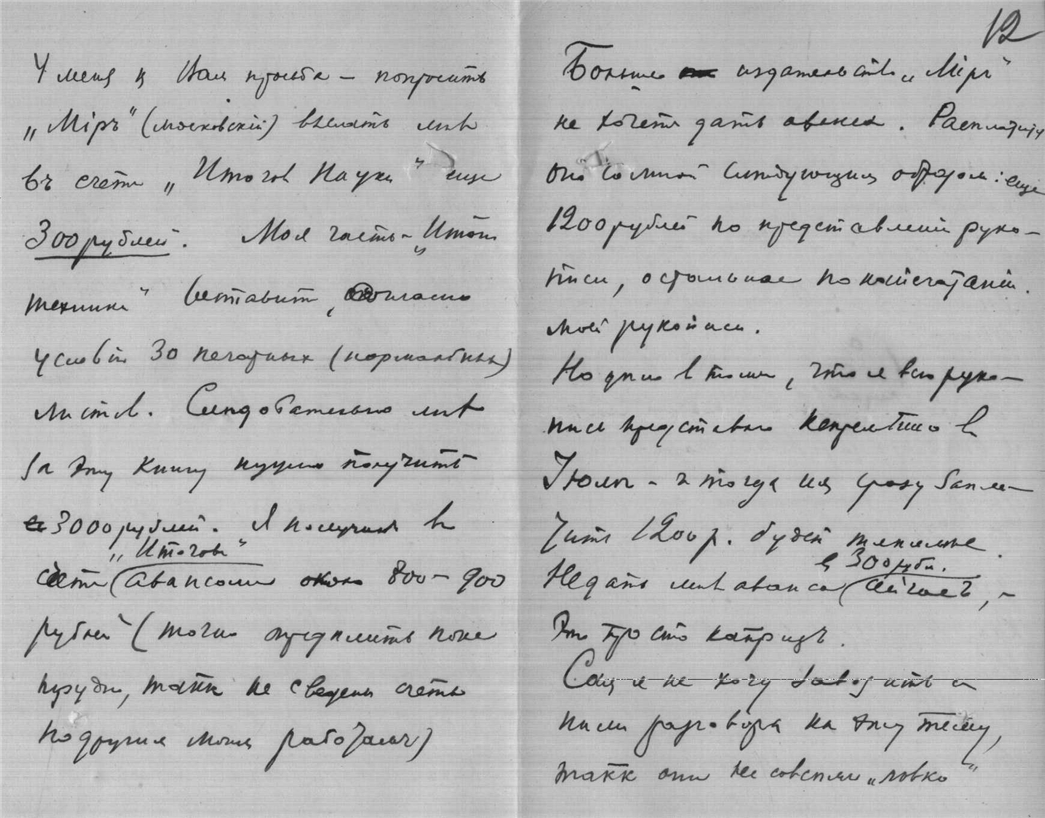 У меня к Вам просьба – попросить
„Міръ" (московскій) выслать мнѣ
въ счетъ „Итоговъ Науки" еще
300 рублей. Моя часть – „Итоги
техники" составитъ, согласно
условію 30 печатныхъ (нормальных)
листовъ. Слѣдовательно мнѣ
за эту книгу нужно получить
3000 рублей. Я получилъ въ
счетъ „Итоговъ" авансомъ около 800 – 900
рублей (точно опредѣлить пока
трудно, такъ какъ не сведены счеты
по другимъ моимъ работамъ)
12
Больше издательство „Міръ"
не хочетъ дать аванса. Расплата
оно со мной слѣдующимъ образомъ: еще
1200 рублей по представленіи руко-
писи, остальное по напечатаніи
моей рукописи.
Но дѣло в томъ, что я всю руко-
пись представлю непремѣнно в
Іюлѣ – и тогда имъ сразу запла-
тить 1200 р. будетъ тяжелѣе.
Не дать мнѣ аванса в 300 рубл. сейчасъ, –
это просто капризъ.
Самъ я не хочу заводить с
ними разговора на эту тему,
такъ какъ они не совсѣмъ „ловко"